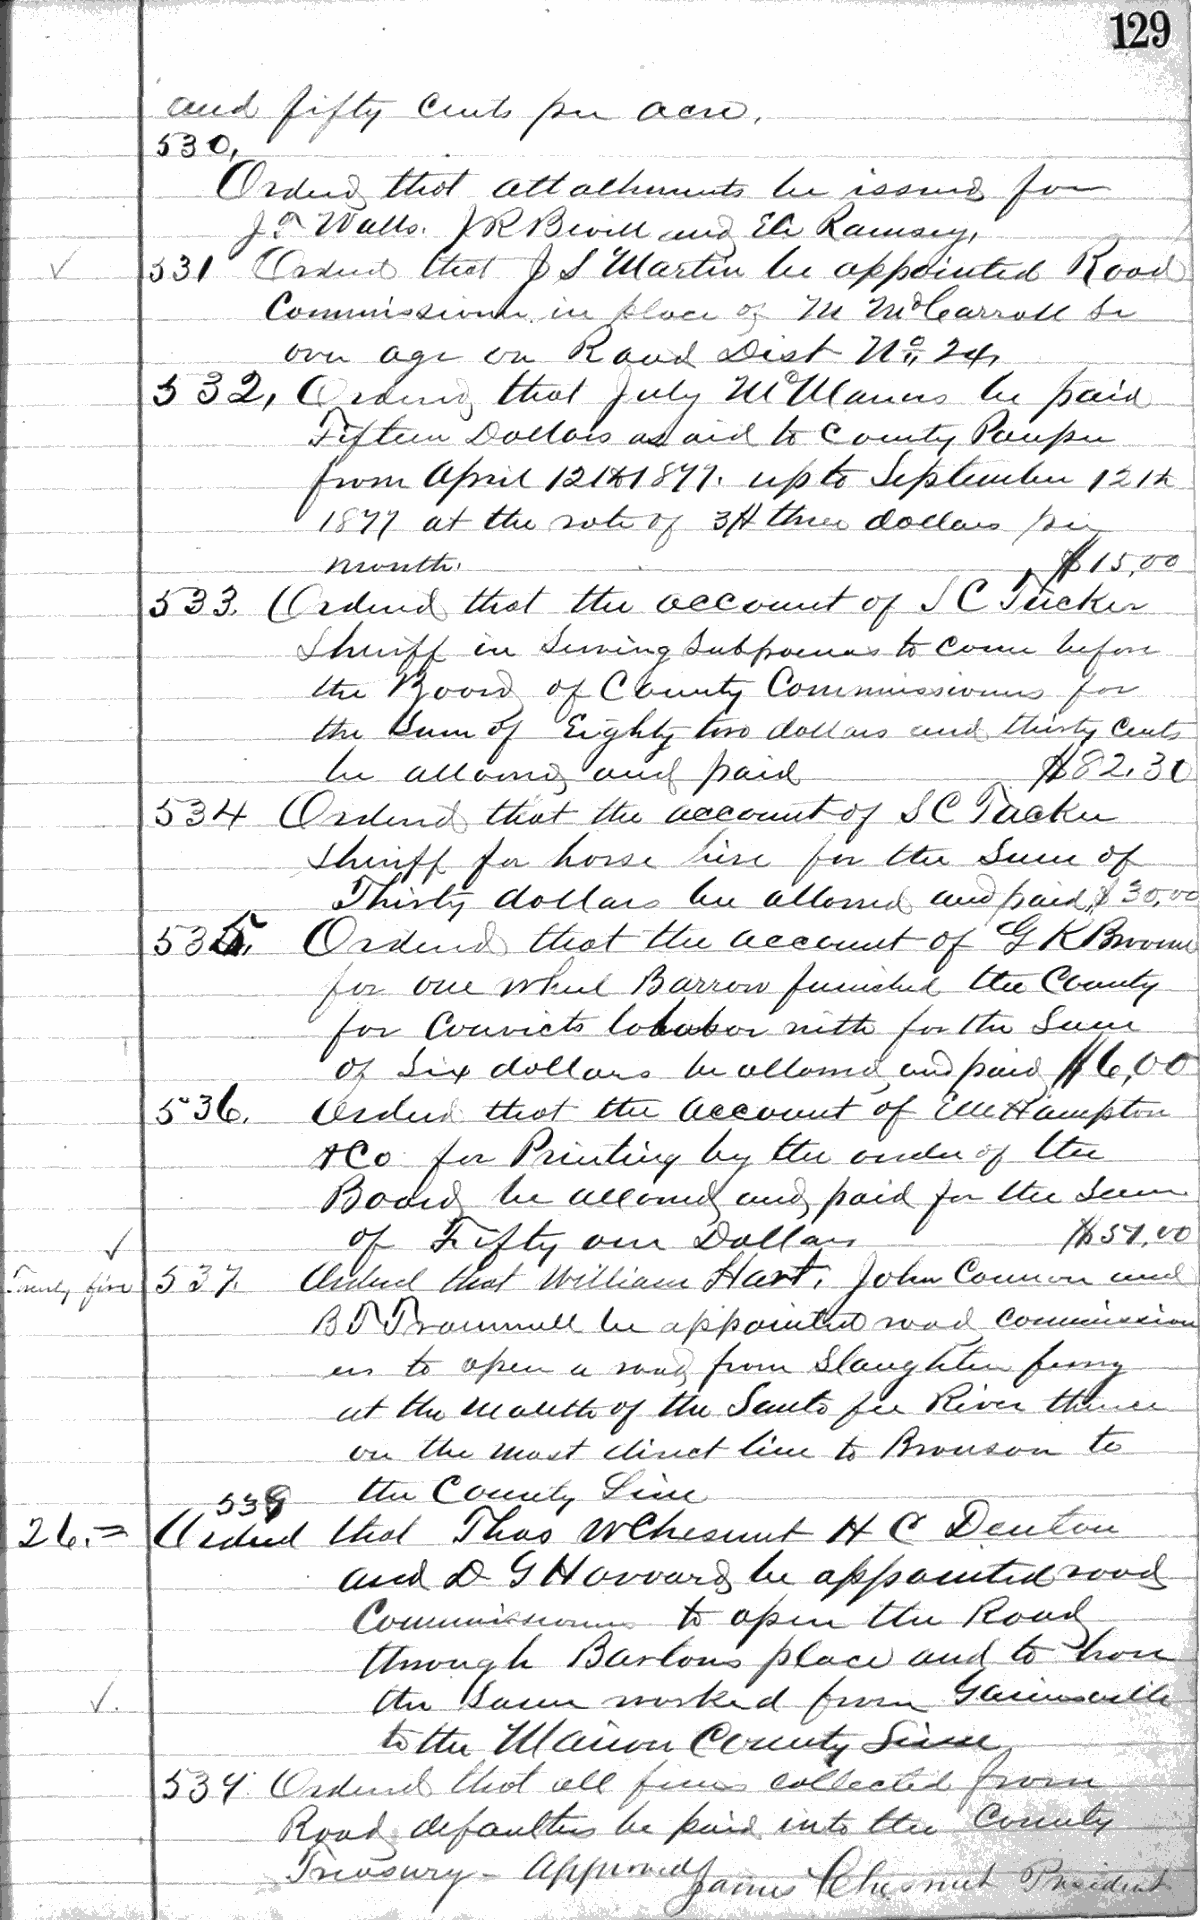 129
and fifty Cents per acre.
530,
Ordered that attachments be issued for
J T Walls. J R Bevill and Eli Ramsey,
531 Ordered that J S Martin be appointed Road
Commissioner in place of M McCarroll Sr
over age on Road Dist No 24,
532, Ordered that July McManus be paid
Fifteen Dollars as aid to County Pauper
from April 12th 1877. up to September 12th
1877 at the rate of 3 $ three dollars per
month. $15,00
533. Ordered that the account of S C Tucker
Sheriff in Serving Subpoenas to come before
the Board of County Commissioners for
the Sum of Eighty two dollars and thirty Cents
be allowed and paid $82.30
534 Ordered that the account of S C Tucker
Sheriff for horse hire for the Sum of
Thirty dollars be allowed and paid, $30,00
535, Ordered that the account of G K Broome
for one wheel Barrow furnished the County
for Convicts to labor with for the Sum
of Six dollars be allowed, and paid $6,00
536. Ordered that the account of Hampton
& Co for Printing by the order of the
Board be allowed and paid for the Sum
of Fifty one Dollars $51,00
Twenty five 537. Ordered that William Hart, John Connor and
B T Trammell be appointed road commission
ers to open a road from Slaughter ferry
at the mouth of the Santa fee River thence
on the most direct line to Bronson to
the County Line
538
26.= Ordered that Thos W Chesnut H C Denton
and D G Havvard be appointed road
Commissioners to open the Road
through Bartons place and to have
the Same worked from Gainesville
to the Marion County Line
539. Ordered that all fines collected from
Road defaulters be paid into the County
Treasury - Approved
James Chesnut President